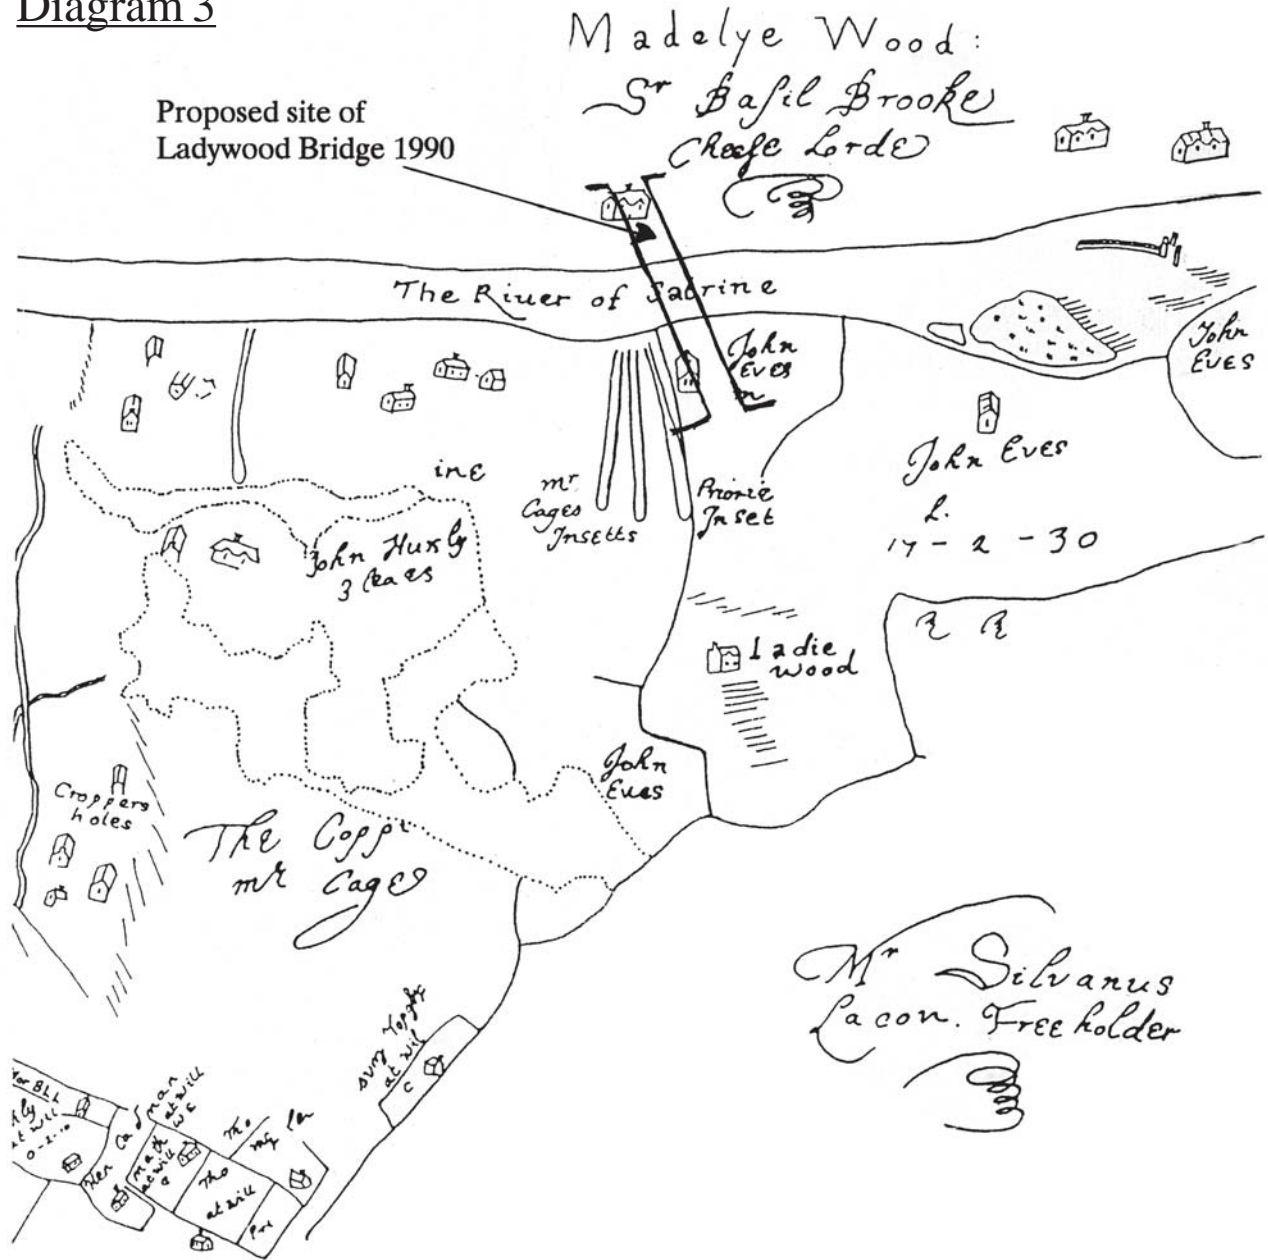 Diagram 3
Madelye Wood:
Sr Basil Brooke
Cheefe Lorde
Proposed site of
Ladywood Bridge 1990
The River of Sabrine
John
Eves
m
John
Eves
John Eves
L.
17 - 2 - 30
ine
mr
Cages
Insetts
Priorie
Inset
John Huxly
3 leaes
Ladie
wood
John
Eves
Croppers
holes
The Copp
mr Cages
Mr Silvanus
Lacon. Freeholder
at wil
C
at will
at will
Tho
Tho
at will